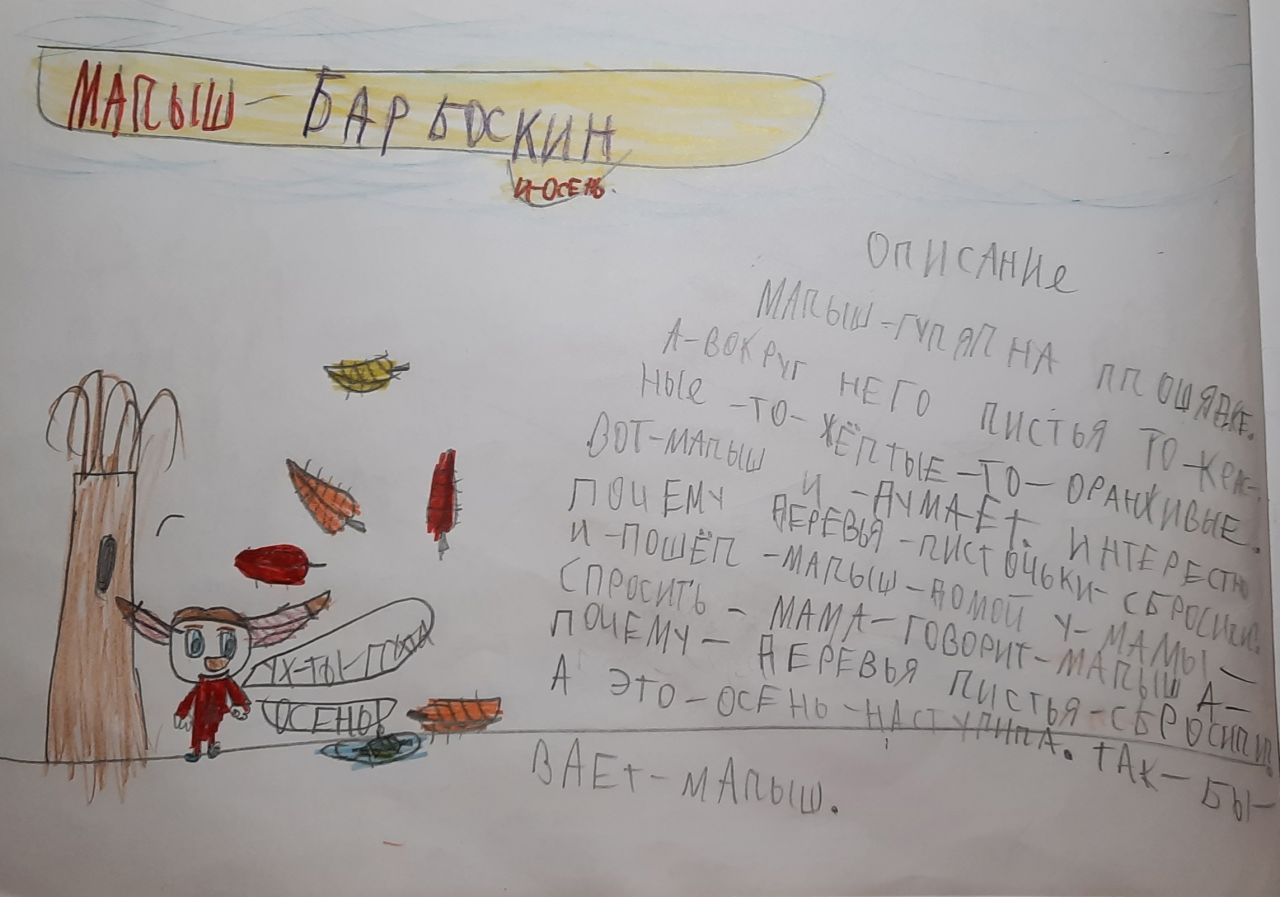 МАЛЫШ-БАРБОСКИН
И-ОСЕНЬ.
ОПИСАНИе
МАЛЫШ-ГУЛЯЛ НА ПЛОЩЯДКЕ.
А-ВОКРУГ НЕГО ЛИСТЬЯ ТО-КРАС-
НЫе-ТО-ЖЁЛТЫЕ-ТО-ОРАНЖИВЫЕ.
ВОТ-МАЛЫШ И-ДУМАЕТ. ИНТЕРЕСТНО
ПОЧЕМУ ДЕРЕВЬЯ-ЛИСТОЧЬКИ-СБРОСИЛИ?
И-ПОШЁЛ-МАЛЫШ-ДОМОЙ У-МАМЫ-
СПРОСИТЬ-МАМА-ГОВОРИТ-МАЛЫШ А-
ПОЧЕМУ-ДЕРЕВЬЯ ЛИСТЬЯ-СБРОСИЛИ.
А ЭТО-ОСЕНЬ-НАСТУПИЛА. ТАК-БЫ-
ВАЕТ-МАЛЫШ.
УХ-ТЫ
ОСЕНЬ!